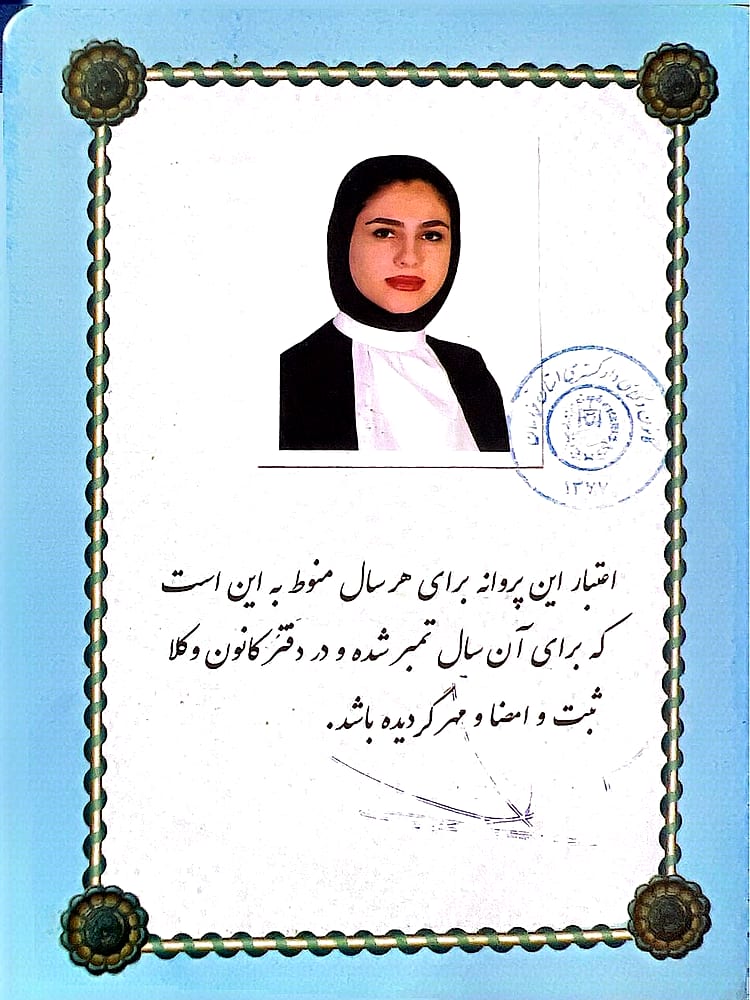 کانون وکلای دادگستری استان
۱۳۷۷
اعتبار این پروانه برای هر سال منوط به این است
که برای آن سال تمبر شده و در دفتر کانون وکلا
ثبت و امضا و مهر گردیده باشد.